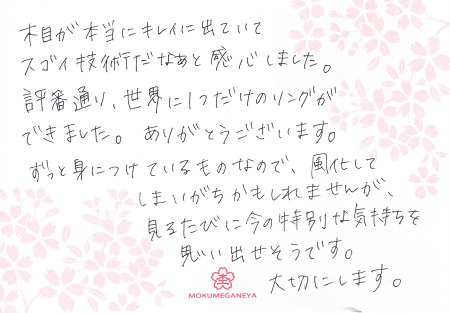 木目が本当にキレイに出ていて
スゴイ技術だなあと感心しました。
評番通り、世界に1つだけのリングが
できました。ありがとうございます。
ずっと身につけているものなので、風化して
しまいがちかもしれませんが、
見るたびに今の特別な気持ちを
思い出せそうです。
大切にします。
MOKUMEGANEYA